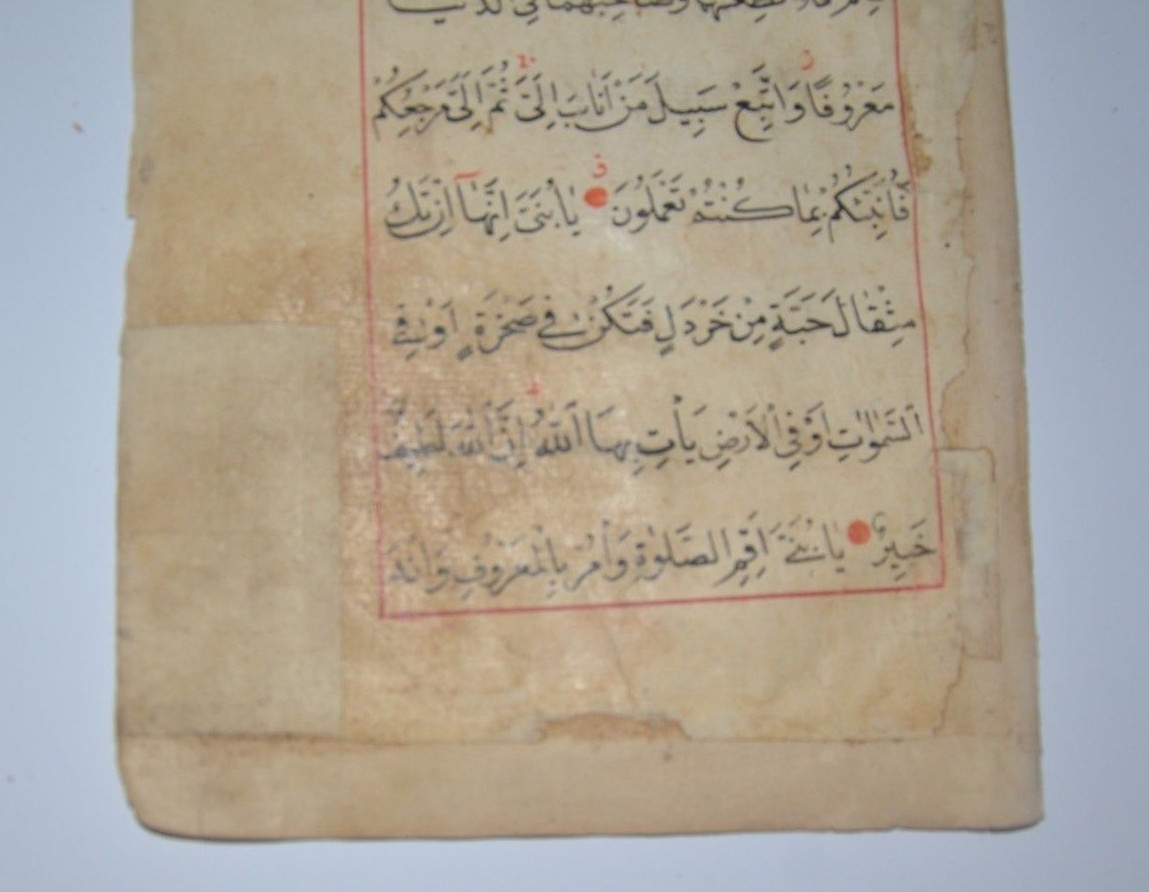 علم فلا تطعهما وصاحبهما فى الدنيا
مَعْرُوفًا وَاتَّبِعْ سَبِيلَ مَنْ اَنَابَ اِلَىَّ ثُمَّ اِلَىَّ مَرْجِعُكُمْ
فَاُنَبِّئُكُمْ بِمَا كُنْتُمْ تَعْمَلُونَ يَا بُنَىَّ اِنَّهَا اِنْ تَكُ
مِثْقَالَ حَبَّةٍ مِنْ خَرْدَلٍ فَتَكُنْ فِى صَخْرَةٍ اَوْ فِى
السَّمٰوَاتِ اَوْ فِى الْاَرْضِ يَأْتِ بِهَا اللّٰهُ اِنَّ اللّٰهَ لَطِيفٌ
خَبِيرٌ يَا بُنَىَّ اَقِمِ الصَّلٰوةَ وَأْمُرْ بِالْمَعْرُوفِ وَانْهَ